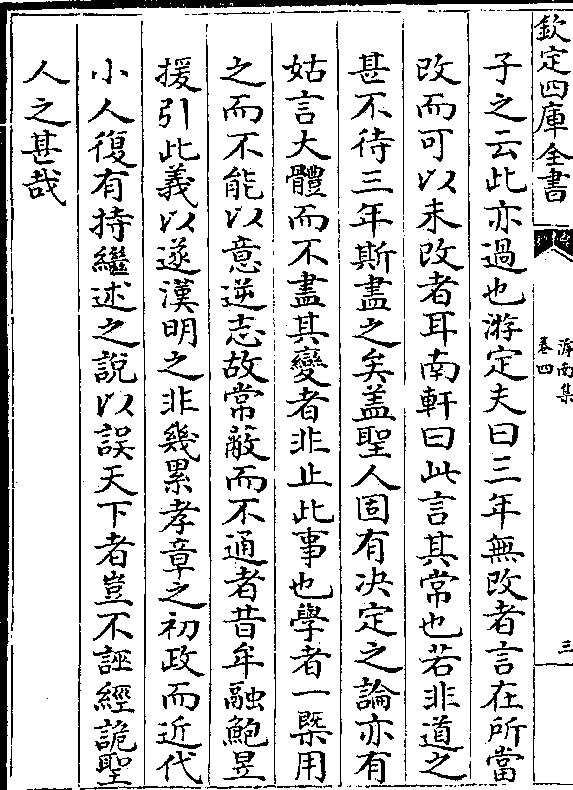 欽定四庫全書
滹南集
卷四
三
子之云此亦過也游定夫曰三年無改者言在所當
改而可以未改者耳南軒曰此言其常也若非道之
甚不待三年斯盡之矣盖聖人固有決定之論亦有
姑言大體而不盡其變者非止此事也學者一槩用
之而不能以意逆志故常蔽而不通者昔年融鮑昱
援引此義以遂漢明之非幾累孝章之初政而近代
小人復有持繼述之說以誤天下者豈不誣經詭聖
人之甚哉